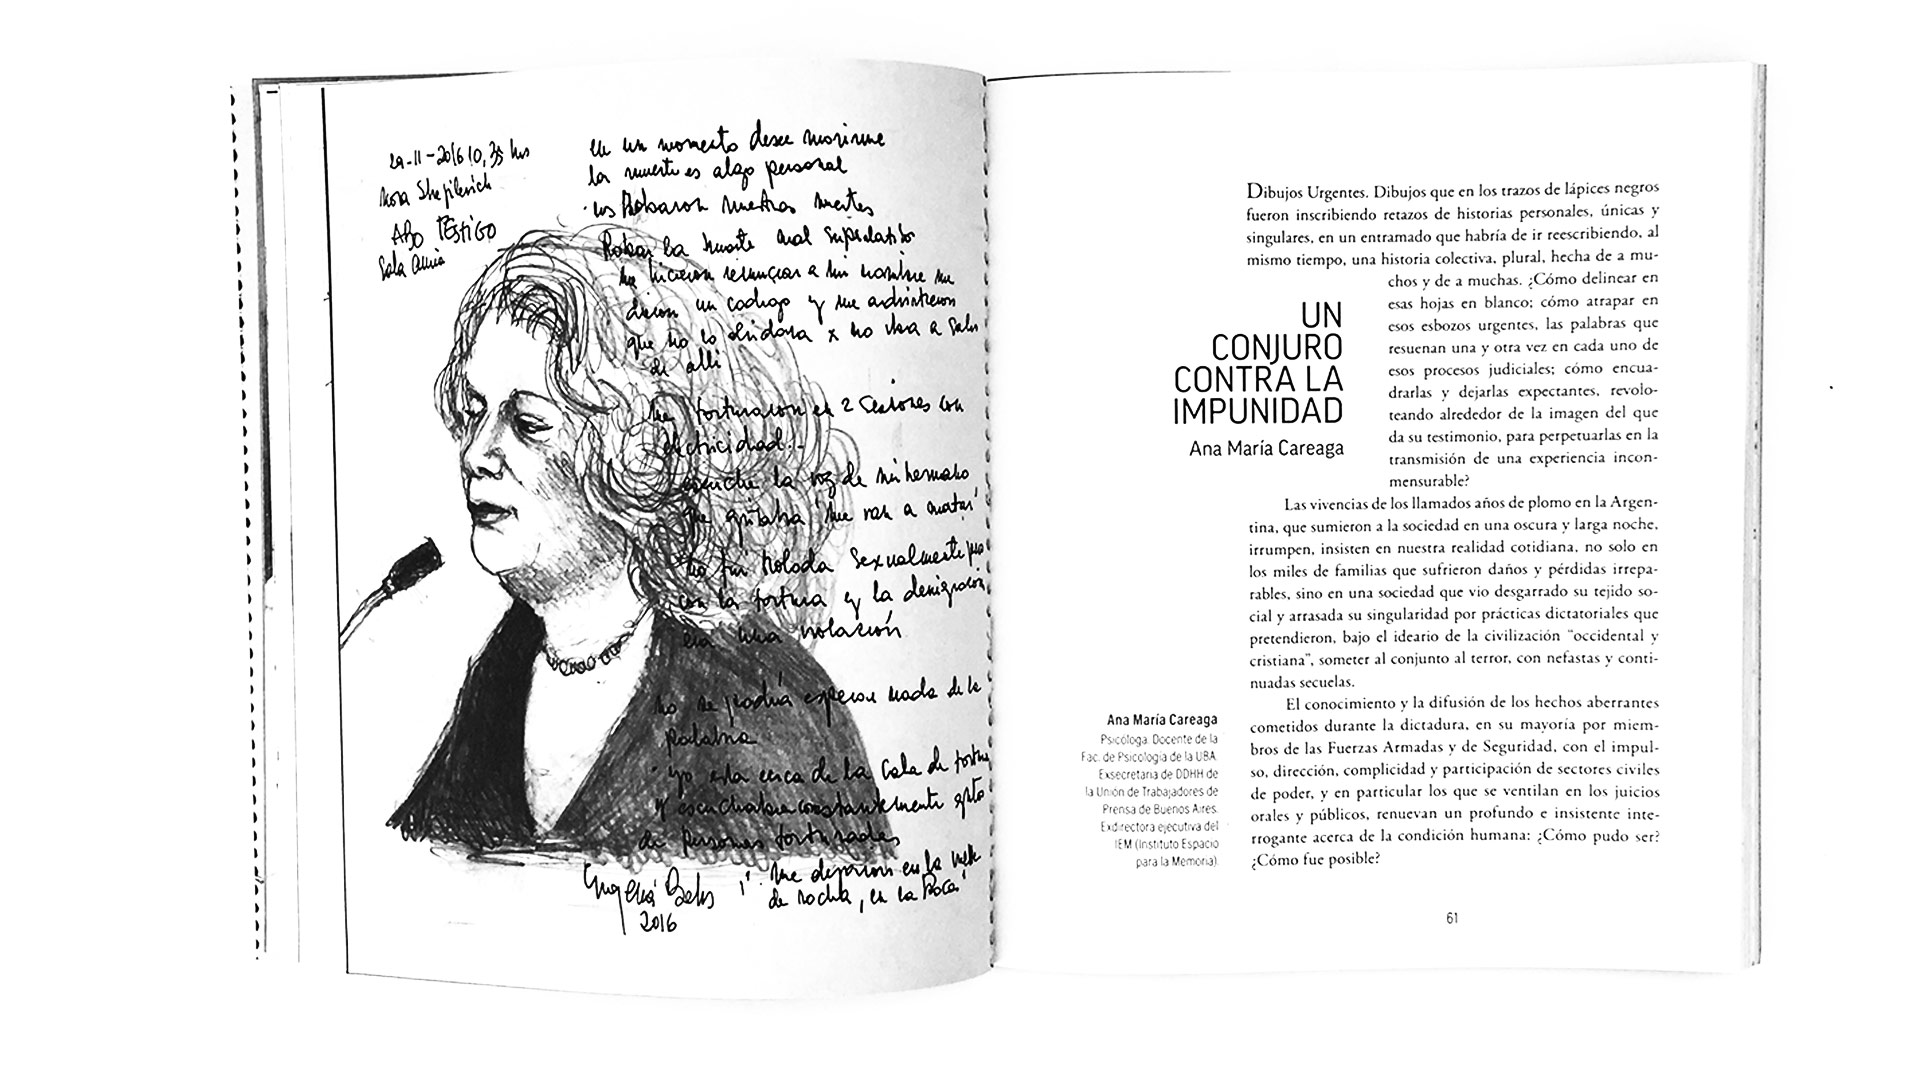 29-11-2016 10,35 hs
Nora
ABO TESTIGO
Sala AMIA
en un momento desee morirme
la muerte es algo personal
nos Robaron nuestras muertes
Robar la muerte
me hicieron renunciar a mi nombre me
dieron un codigo y me advirtieron
que no lo olvidara x no iba a salir
de alli
me torturaron en 2 sesiones con
electricidad.-
escuche la voz de mi hermano
que gritaba "me van a matar"
no fui violada sexualmente pero
con la tortura y la denigración
era una violación
no se podia esperar nada de la
palabra
yo esta cerca de la sala de tortura
y escuchaba constantemente grito
de personas torturadas
Eugenia Bekes
2016
"me dejaron en la
de noche, en la Boca"
Dibujos Urgentes. Dibujos que en los trazos de lápices negros
fueron inscribiendo retazos de historias personales, únicas y
singulares, en un entramado que habría de ir reescribiendo, al
mismo tiempo, una historia colectiva, plural, hecha de a mu-
chos y de a muchas. ¿Cómo delinear en
esas hojas en blanco; cómo atrapar en
esos esbozos urgentes, las palabras que
resuenan una y otra vez en cada uno de
esos procesos judiciales; cómo encua-
drarlas y dejarlas expectantes, revolo-
teando alrededor de la imagen del que
da su testimonio, para perpetuarlas en la
transmisión de una experiencia incon-
mensurable?
UN
CONJURO
CONTRA LA
IMPUNIDAD
Ana María Careaga
Las vivencias de los llamados años de plomo en la Argen-
tina, que sumieron a la sociedad en una oscura y larga noche,
irrumpen, insisten en nuestra realidad cotidiana, no solo en
los miles de familias que sufrieron daños y pérdidas irrepa-
rables, sino en una sociedad que vio desgarrado su tejido so-
cial y arrasada su singularidad por prácticas dictatoriales que
pretendieron, bajo el ideario de la civilización "occidental y
cristiana", someter al conjunto al terror, con nefastas y conti-
nuadas secuelas.
El conocimiento y la difusión de los hechos aberrantes
cometidos durante la dictadura, en su mayoría por miem-
bros de las Fuerzas Armadas y de Seguridad, con el impul-
so, dirección, complicidad y participación de sectores civiles
de poder, y en particular los que se ventilan en los juicios
orales y públicos, renuevan un profundo e insistente inte-
rrogante acerca de la condición humana: ¿Cómo pudo ser?
¿Cómo fue posible?
Ana María Careaga
Psicóloga. Docente de la
Fac. de Psicología de la UBA.
Exsecretaria de DDHH de
la Unión de Trabajadores de
Prensa de Buenos Aires.
Exdirectora ejecutiva del
IEM (Instituto Espacio
para la Memoria).
61